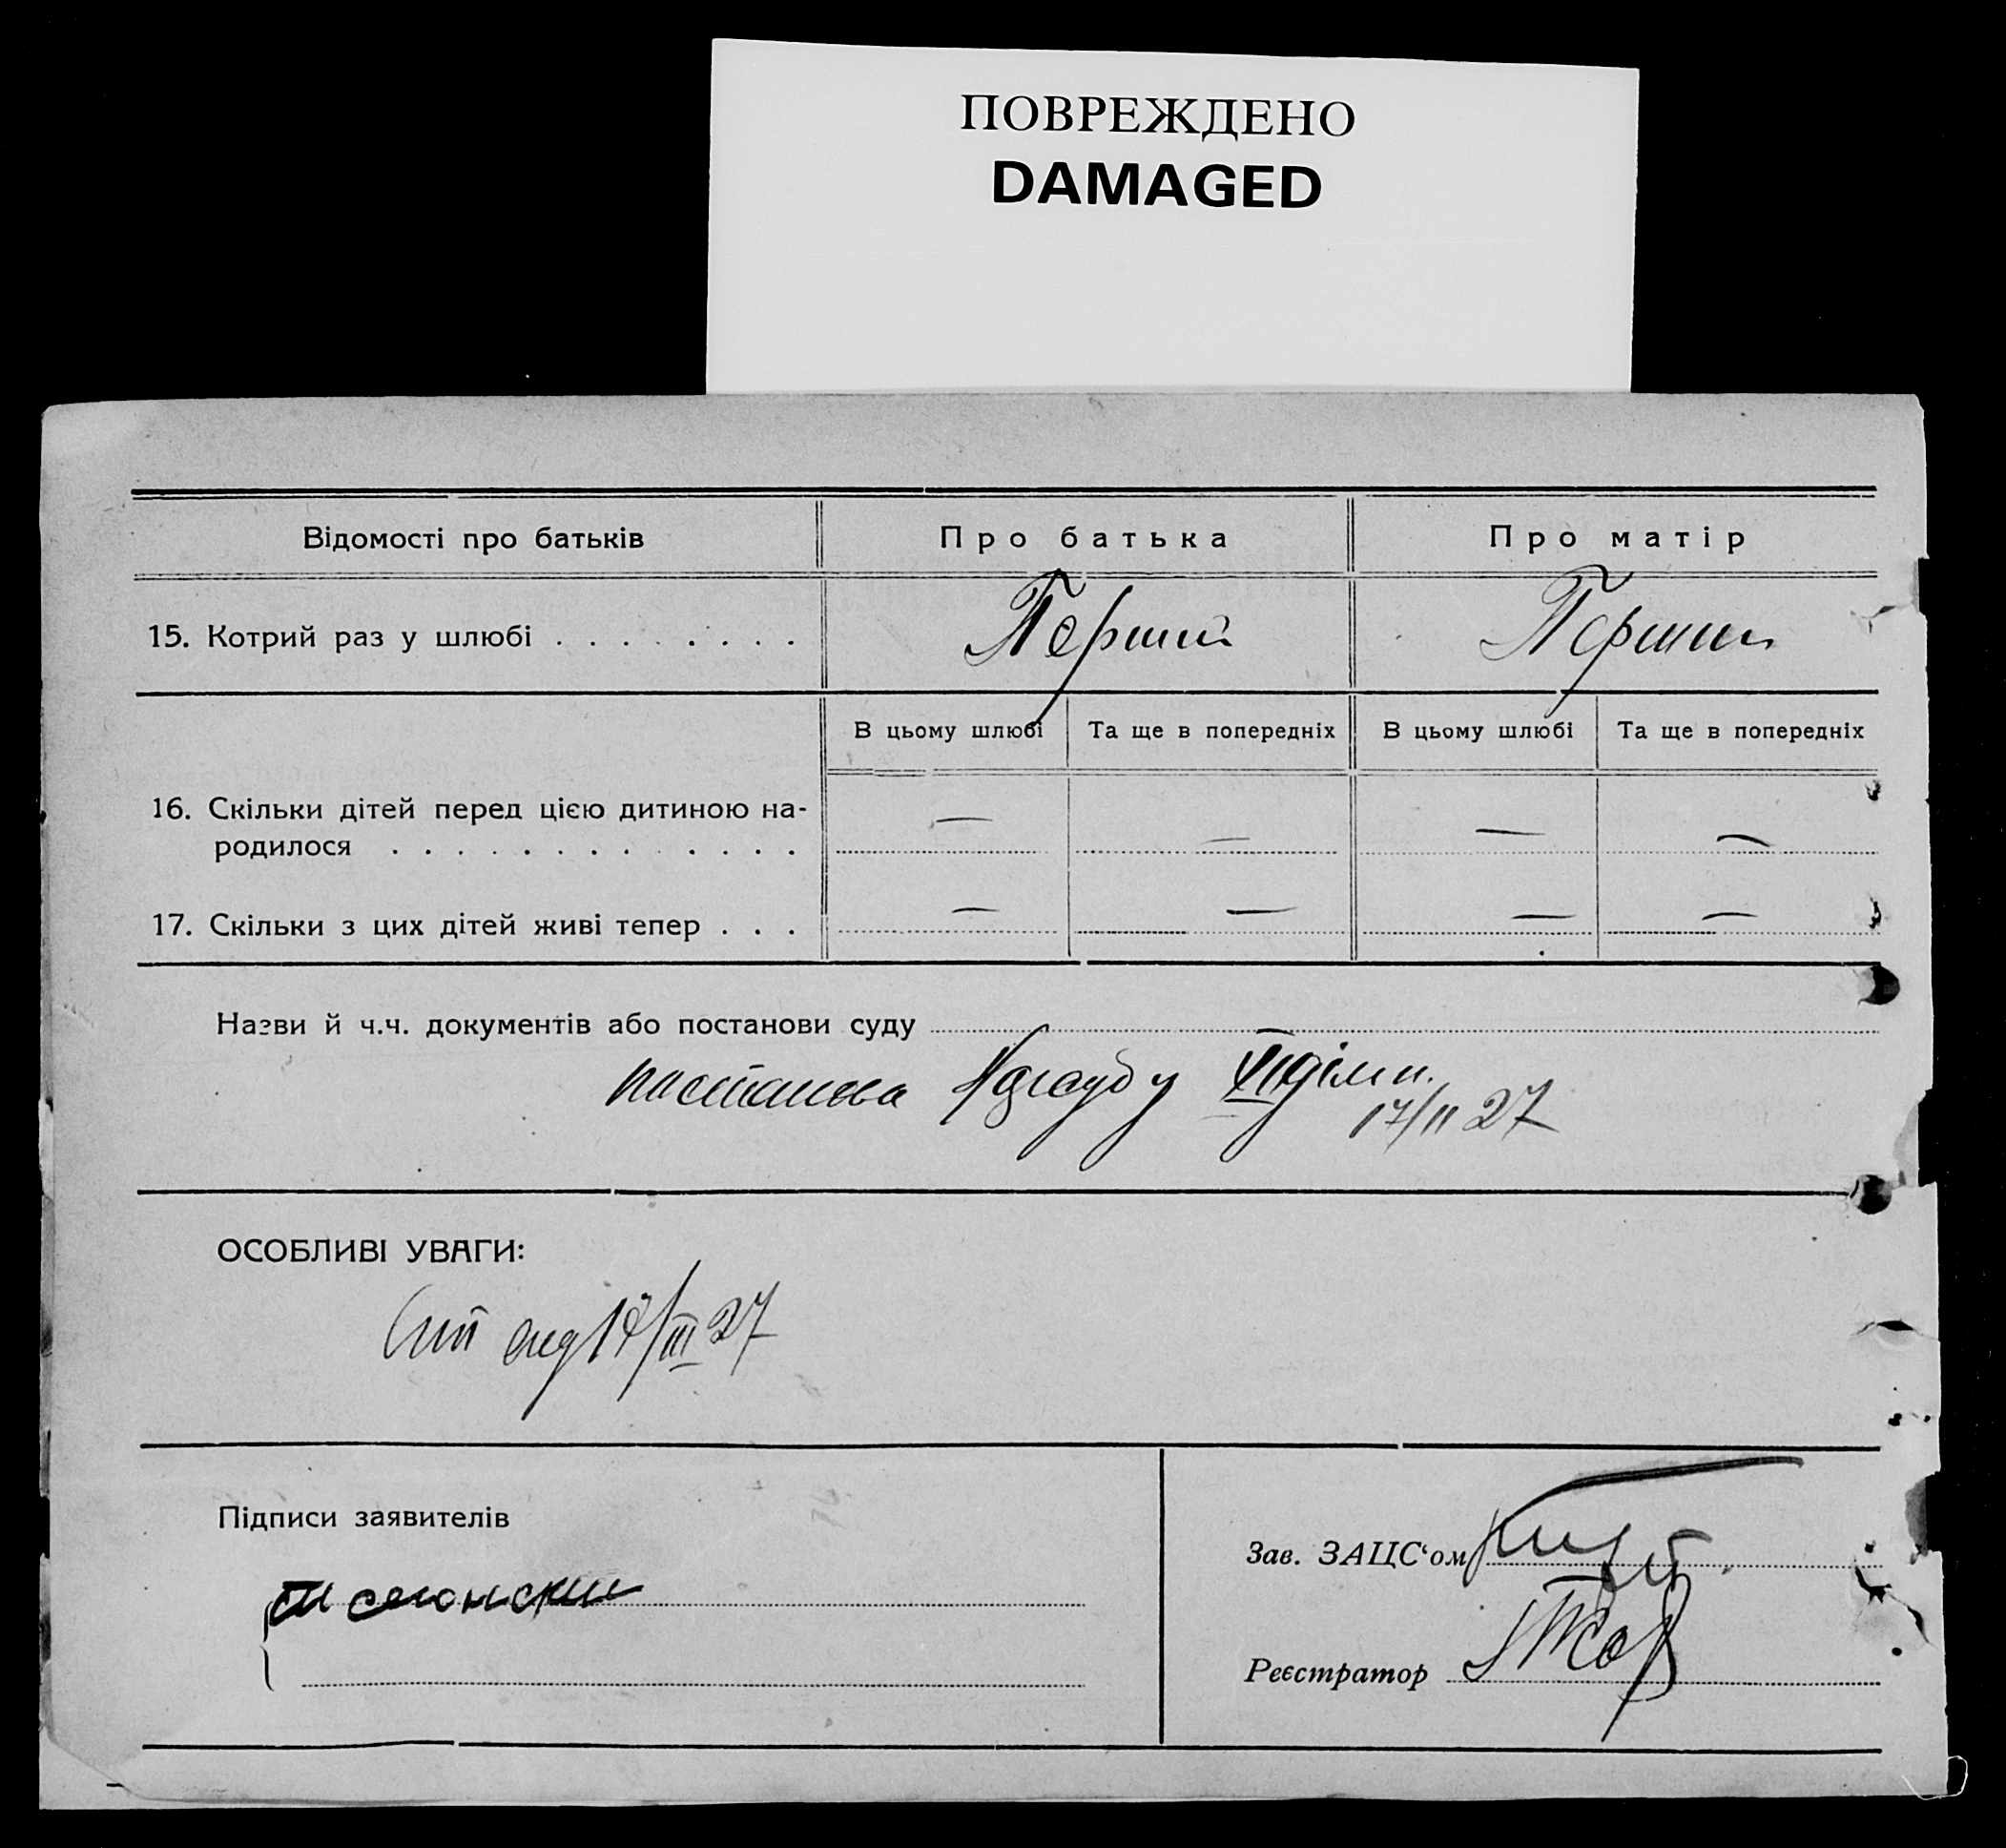 ПОВРЕЖДЕНО
DAMAGED
Відомості про батьків
Про батька
Про матір
15. Котрий раз у шлюбі . . . . . . . .
Перший
Перший
В цьому шлюбі
Та ще в попередніх
В цьому шлюбі
Та ще в попередніх
16. Скільки дітей перед цією дитиною на-
родилося . . . . . . . . . . . . .
— — — —
17. Скільки з цих дітей живі тепер . . .
— — — —
Назви й ч.ч. документів або постанови суду
постанова Нарсуду VII дільн.
17/II 27
ОСОБЛИВІ УВАГИ:
17/III 27
Підписи заявителів
Зав. ЗАЦС‘ом
Реєстратор